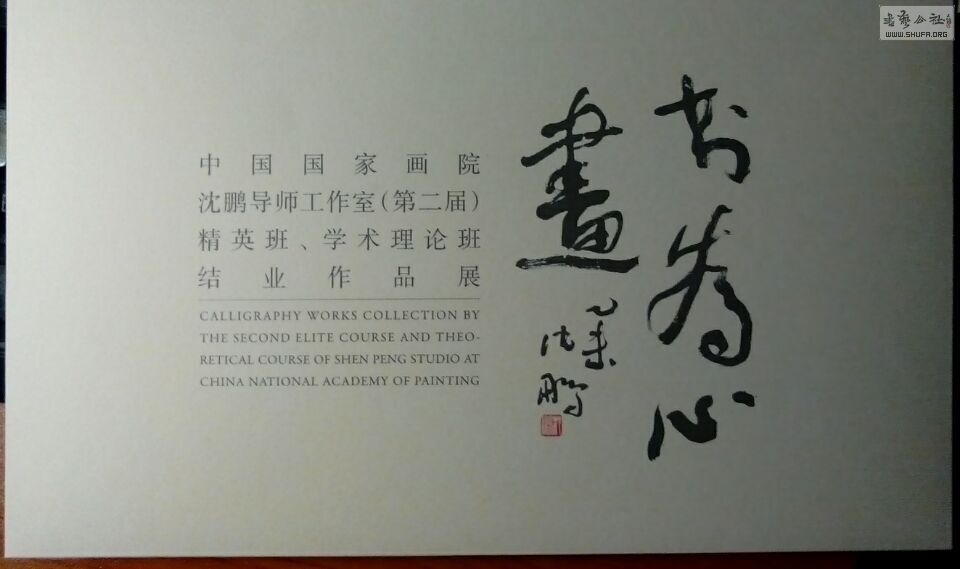 书艺公社
WWW.SHUFA.ORG
书为心
畫
乙未
沈鹏
中国国家画院
沈鹏导师工作室(第二届)
精英班、学术理论班
结业作品展
CALLIGRAPHY WORKS COLLECTION BY
THE SECOND ELITE COURSE AND THEO-
RETICAL COURSE OF SHEN PENG STUDIO AT
CHINA NATIONAL ACADEMY OF PAINTING